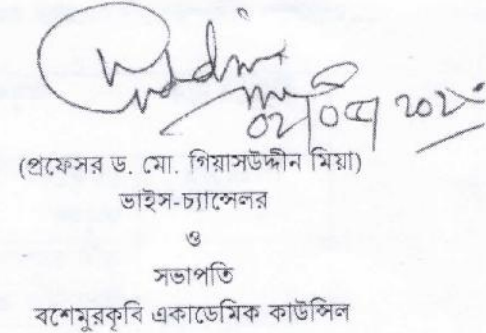 (প্রফেসর ড. মো. গিয়াসউদ্দীন মিয়া)
ভাইস-চ্যান্সেলর
ও
সভাপতি
বশেমুরকৃবি একাডেমিক কাউন্সিল